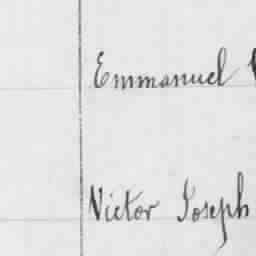 Emmanuel
Victor Joseph